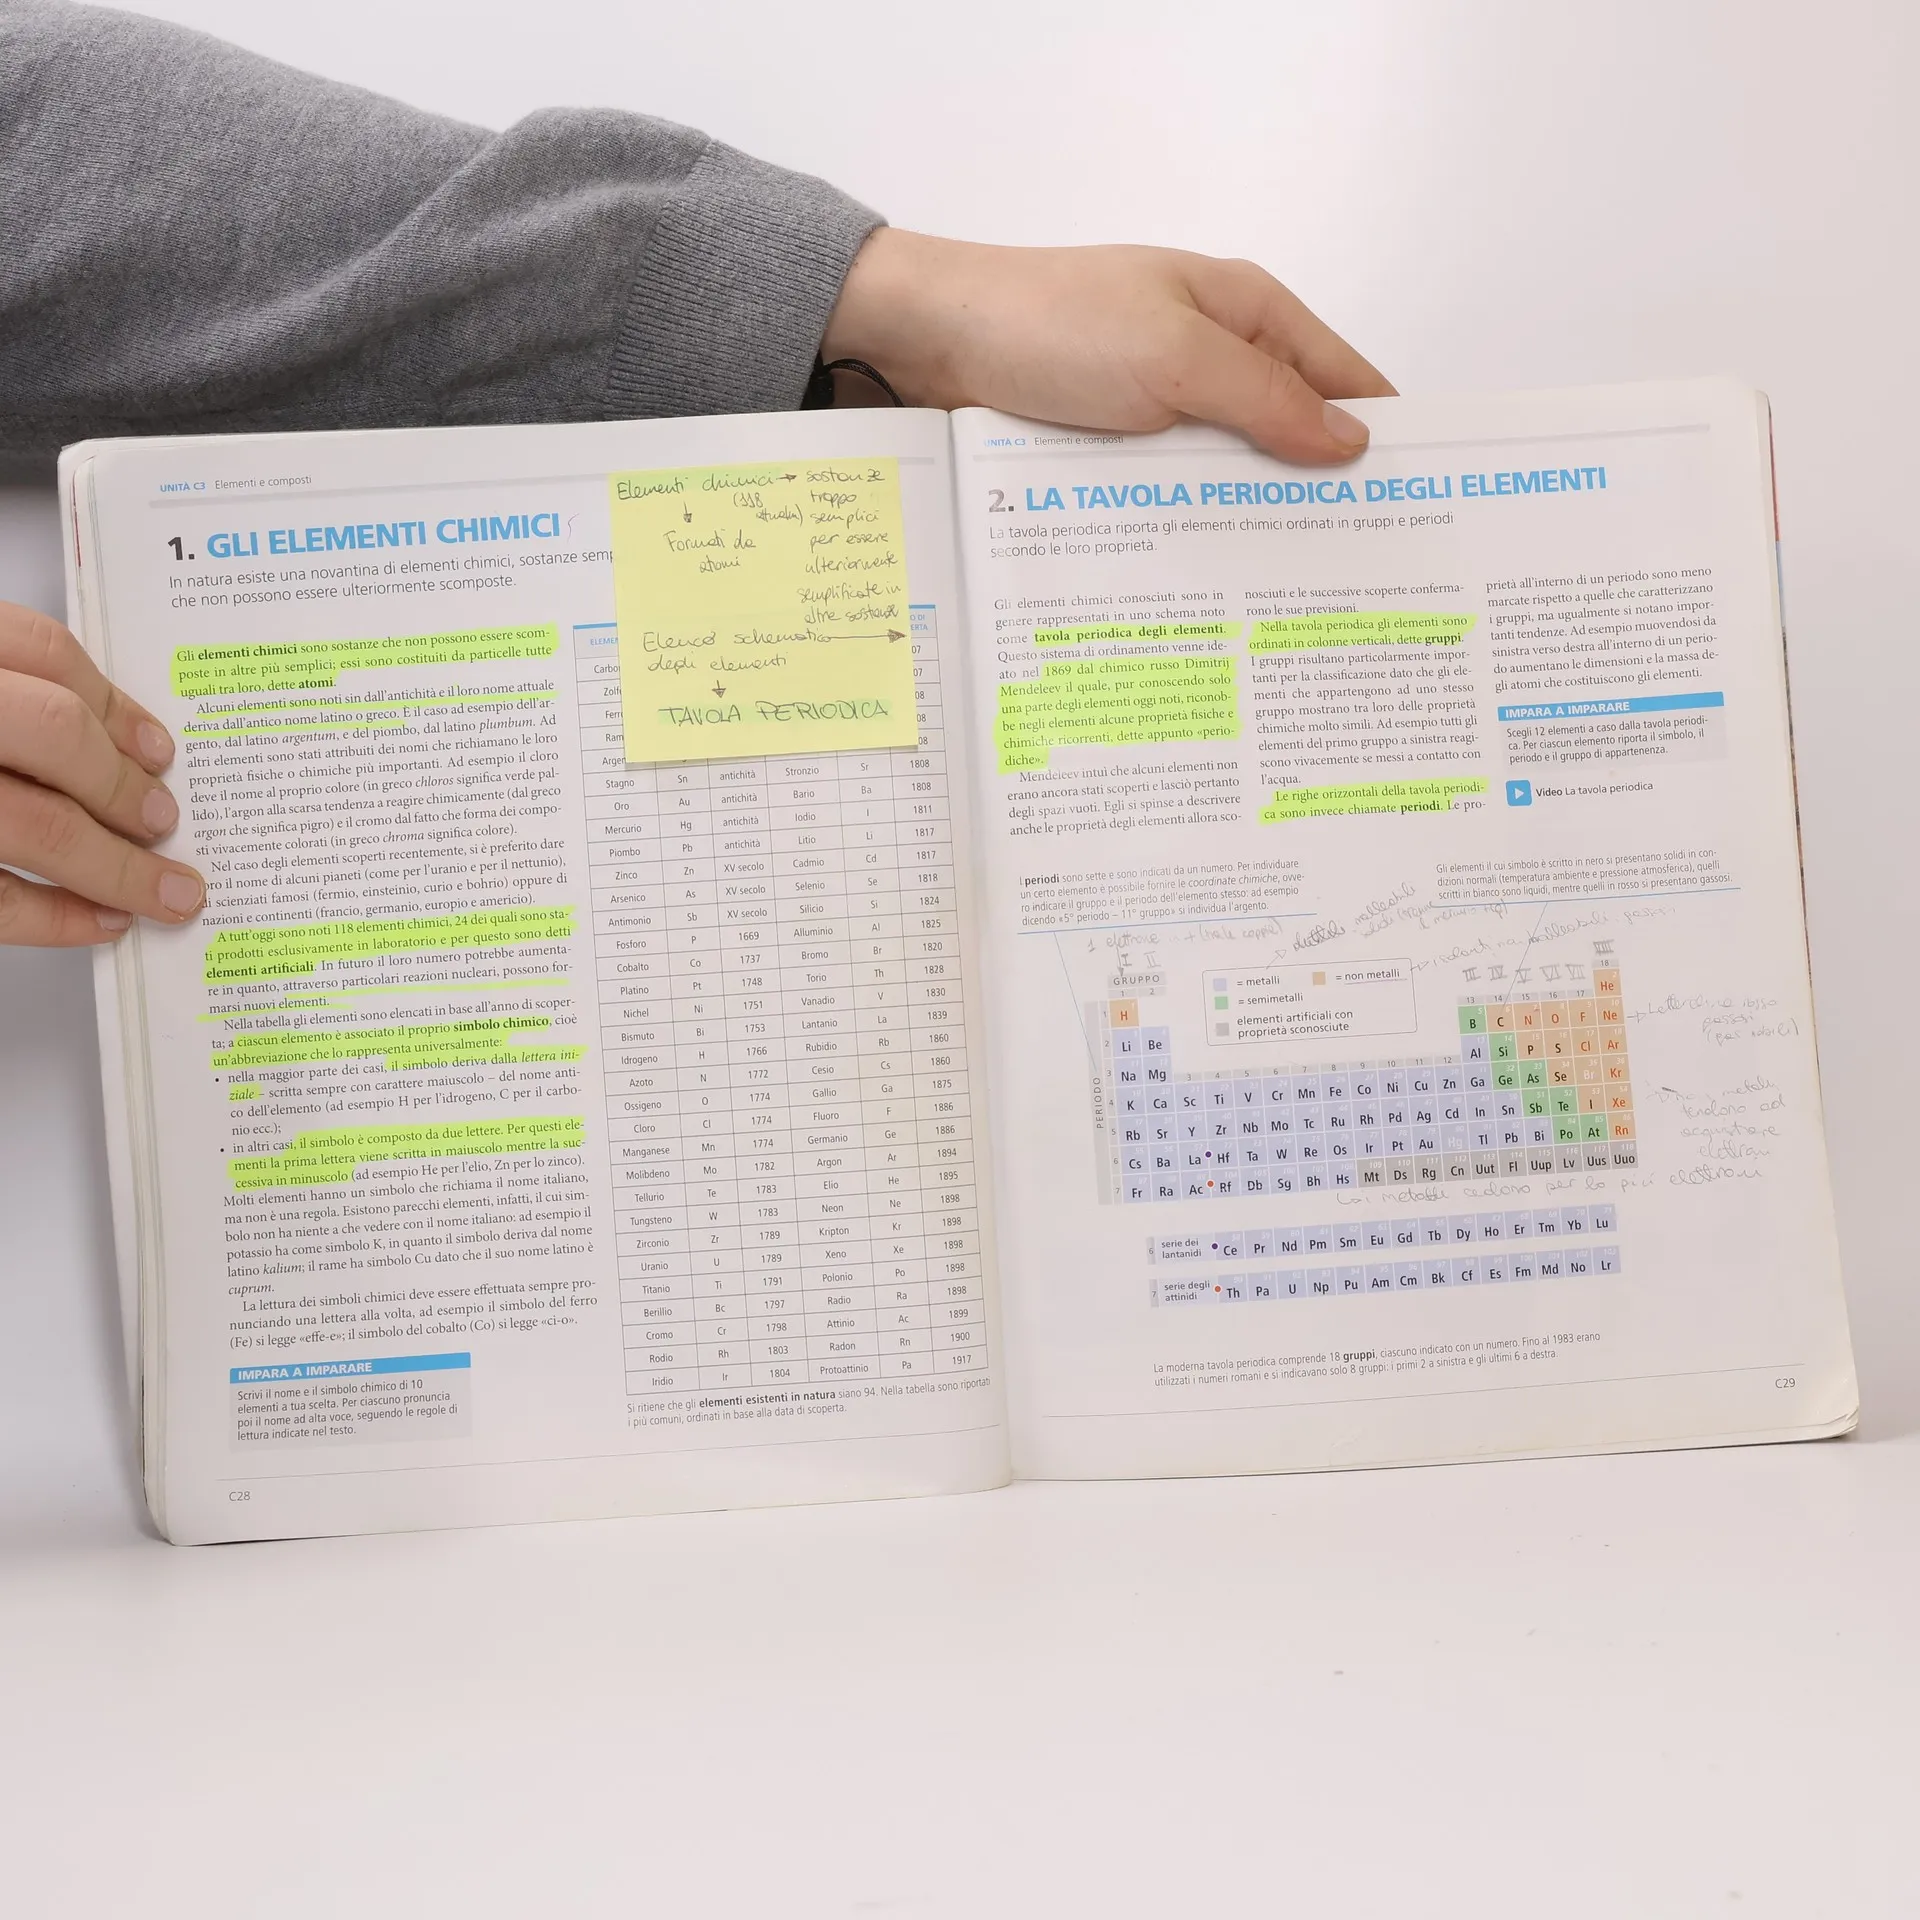 UNITÀ C3 Elementi e composti
1. GLI ELEMENTI CHIMICI
In natura esiste una novantina di elementi chimici, sostanze semp
che non possono essere ulteriormente scomposte.
Gli elementi chimici sono sostanze che non possono essere scom-
poste in altre più semplici; essi sono costituiti da particelle tutte
uguali tra loro, dette atomi.
Alcuni elementi sono noti sin dall'antichità e il loro nome attuale
deriva dall'antico nome latino o greco. È il caso ad esempio dell'ar-
gento, dal latino argentum, e del piombo, dal latino plumbum. Ad
altri elementi sono stati attribuiti dei nomi che richiamano le loro
proprietà fisiche o chimiche più importanti. Ad esempio il cloro
deve il nome al proprio colore (in greco chloros significa verde pal-
lido), l'argon alla scarsa tendenza a reagire chimicamente (dal greco
argon che significa pigro) e il cromo dal fatto che forma dei compo-
sti vivacemente colorati (in greco chroma significa colore).
Nel caso degli elementi scoperti recentemente, si è preferito dare
oro il nome di alcuni pianeti (come per l'uranio e per il nettunio),
di scienziati famosi (fermio, einsteinio, curio e bohrio) oppure di
nazioni e continenti (francio, germanio, europio e americio).
A tutt'oggi sono noti 118 elementi chimici, 24 dei quali sono sta-
ti prodotti esclusivamente in laboratorio e per questo sono detti
elementi artificiali. In futuro il loro numero potrebbe aumenta-
re in quanto, attraverso particolari reazioni nucleari, possono for-
marsi nuovi elementi.
Nella tabella gli elementi sono elencati in base all'anno di scoper-
ta; a ciascun elemento è associato il proprio simbolo chimico, cioè
un'abbreviazione che lo rappresenta universalmente:
• nella maggior parte dei casi, il simbolo deriva dalla lettera ini-
ziale – scritta sempre con carattere maiuscolo – del nome anti-
co dell'elemento (ad esempio H per l'idrogeno, C per il carbo-
nio ecc.);
• in altri casi, il simbolo è composto da due lettere. Per questi ele-
menti la prima lettera viene scritta in maiuscolo mentre la suc-
cessiva in minuscolo (ad esempio He per l'elio, Zn per lo zinco).
Molti elementi hanno un simbolo che richiama il nome italiano,
ma non è una regola. Esistono parecchi elementi, infatti, il cui sim-
bolo non ha niente a che vedere con il nome italiano: ad esempio il
potassio ha come simbolo K, in quanto il simbolo deriva dal nome
latino kalium; il rame ha simbolo Cu dato che il suo nome latino è
cuprum.
La lettura dei simboli chimici deve essere effettuata sempre pro-
nunciando una lettera alla volta, ad esempio il simbolo del ferro
(Fe) si legge «effe-e»; il simbolo del cobalto (Co) si legge «ci-o».
IMPARA A IMPARARE
Scrivi il nome e il simbolo chimico di 10
elementi a tua scelta. Per ciascuno pronuncia
poi il nome ad alta voce, seguendo le regole di
lettura indicate nel testo.
C28
Elementi chimici → sostanze
(118 troppo
attualm) semplici
Formati da per essere
atomi ulteriormente
semplificate in
altre sostanze
Elenco schematico
degli elementi
TAVOLA PERIODICA
ELEMEN O DI
ERTA
Carbo 07
Zolf 07
Ferr 08
Ram 08
Argen 08
Stagno Sn antichità Stronzio Sr 1808
Oro Au antichità Bario Ba 1808
Mercurio Hg antichità Iodio I 1811
Piombo Pb antichità Litio Li 1817
Zinco Zn XV secolo Cadmio Cd 1817
Arsenico As XV secolo Selenio Se 1818
Antimonio Sb XV secolo Silicio Si 1824
Fosforo P 1669 Alluminio Al 1825
Cobalto Co 1737 Bromo Br 1820
Platino Pt 1748 Torio Th 1828
Nichel Ni 1751 Vanadio V 1830
Bismuto Bi 1753 Lantanio La 1839
Idrogeno H 1766 Rubidio Rb 1860
Azoto N 1772 Cesio Cs 1860
Ossigeno O 1774 Gallio Ga 1875
Cloro Cl 1774 Fluoro F 1886
Manganese Mn 1774 Germanio Ge 1886
Molibdeno Mo 1782 Argon Ar 1894
Tellurio Te 1783 Elio He 1895
Tungsteno W 1783 Neon Ne 1898
Zirconio Zr 1789 Kripton Kr 1898
Uranio U 1789 Xeno Xe 1898
Titanio Ti 1791 Polonio Po 1898
Berillio Bc 1797 Radio Ra 1898
Cromo Cr 1798 Attinio Ac 1899
Rodio Rh 1803 Radon Rn 1900
Iridio Ir 1804 Protoattinio Pa 1917
Si ritiene che gli elementi esistenti in natura siano 94. Nella tabella sono riportati
i più comuni, ordinati in base alla data di scoperta.
UNITÀ C3 Elementi e composti
2. LA TAVOLA PERIODICA DEGLI ELEMENTI
La tavola periodica riporta gli elementi chimici ordinati in gruppi e periodi
secondo le loro proprietà.
Gli elementi chimici conosciuti sono in
genere rappresentati in uno schema noto
come tavola periodica degli elementi.
Questo sistema di ordinamento venne ide-
ato nel 1869 dal chimico russo Dimitrij
Mendeleev il quale, pur conoscendo solo
una parte degli elementi oggi noti, riconob-
be negli elementi alcune proprietà fisiche e
chimiche ricorrenti, dette appunto «perio-
diche».
Mendeleev intuì che alcuni elementi non
erano ancora stati scoperti e lasciò pertanto
degli spazi vuoti. Egli si spinse a descrivere
anche le proprietà degli elementi allora sco-
nosciuti e le successive scoperte conferma-
rono le sue previsioni.
Nella tavola periodica gli elementi sono
ordinati in colonne verticali, dette gruppi.
I gruppi risultano particolarmente impor-
tanti per la classificazione dato che gli ele-
menti che appartengono ad uno stesso
gruppo mostrano tra loro delle proprietà
chimiche molto simili. Ad esempio tutti gli
elementi del primo gruppo a sinistra reagi-
scono vivacemente se messi a contatto con
l'acqua.
Le righe orizzontali della tavola periodi-
ca sono invece chiamate periodi. Le pro-
prietà all'interno di un periodo sono meno
marcate rispetto a quelle che caratterizzano
i gruppi, ma ugualmente si notano impor-
tanti tendenze. Ad esempio muovendosi da
sinistra verso destra all'interno di un perio-
do aumentano le dimensioni e la massa de-
gli atomi che costituiscono gli elementi.
IMPARA A IMPARARE
Scegli 12 elementi a caso dalla tavola periodi-
ca. Per ciascun elemento riporta il simbolo, il
periodo e il gruppo di appartenenza.
Video La tavola periodica
I periodi sono sette e sono indicati da un numero. Per individuare
un certo elemento è possibile fornire le coordinate chimiche, ovve-
ro indicare il gruppo e il periodo dell'elemento stesso: ad esempio
dicendo «5° periodo – 11° gruppo» si individua l'argento.
Gli elementi il cui simbolo è scritto in nero si presentano solidi in con-
dizioni normali (temperatura ambiente e pressione atmosferica), quelli
scritti in bianco sono liquidi, mentre quelli in rosso si presentano gassosi.
1 elettrone in + (tra le coppie)
I II
III IV V VI VII VIII
GRUPPO
1 2
= metalli = non metalli
= semimetalli
elementi artificiali con
proprietà sconosciute
PERIODO
13 14 15 16 17 18
1 H He
2 Li Be B C N O F Ne
3 Na Mg 3 4 5 6 7 8 9 10 11 12 Al Si P S Cl Ar
4 K Ca Sc Ti V Cr Mn Fe Co Ni Cu Zn Ga Ge As Se Br Kr
5 Rb Sr Y Zr Nb Mo Tc Ru Rh Pd Ag Cd In Sn Sb Te I Xe
6 Cs Ba La Hf Ta W Re Os Ir Pt Au Hg Tl Pb Bi Po At Rn
7 Fr Ra Ac Rf Db Sg Bh Hs Mt Ds Rg Cn Uut Fl Uup Lv Uus Uuo
tendono ad
acquistare
elettroni
i metalli cedono per lo più elettroni
6 serie dei
lantanidi Ce Pr Nd Pm Sm Eu Gd Tb Dy Ho Er Tm Yb Lu
7 serie degli
attinidi Th Pa U Np Pu Am Cm Bk Cf Es Fm Md No Lr
La moderna tavola periodica comprende 18 gruppi, ciascuno indicato con un numero. Fino al 1983 erano
utilizzati i numeri romani e si indicavano solo 8 gruppi: i primi 2 a sinistra e gli ultimi 6 a destra.
C29